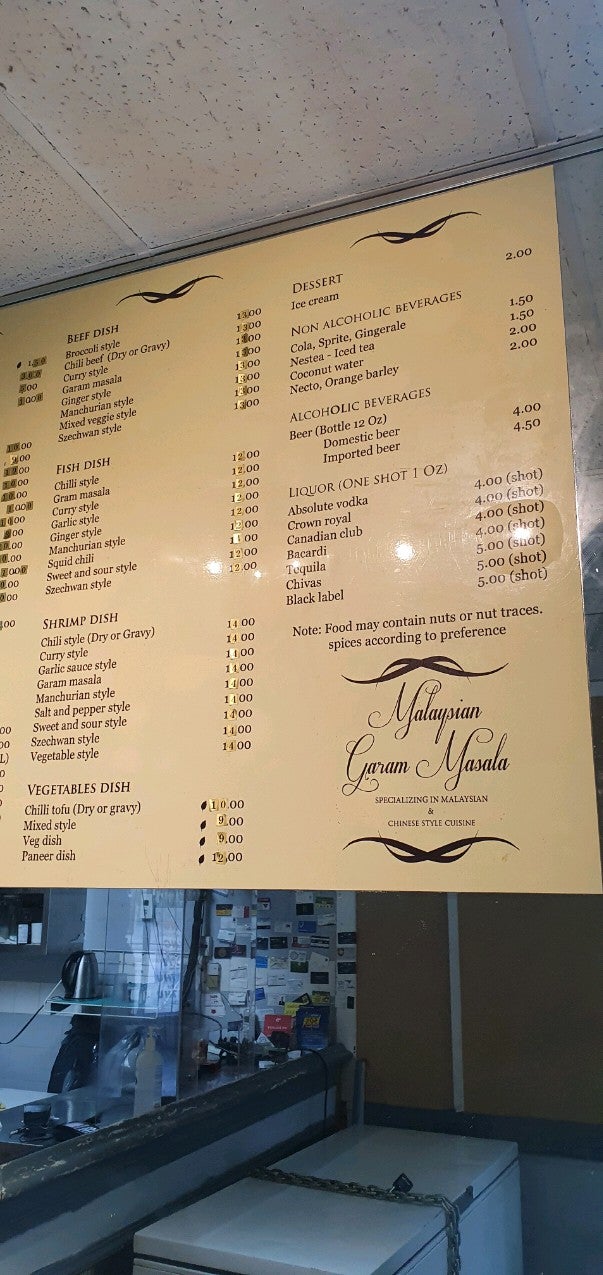 BEEF DISH
Broccoli style 13.00
Chili beef (Dry or Gravy) 13.00
Curry style 13.00
Garam masala 13.00
Ginger style 13.00
Manchurian style 13.00
Mixed veggie style 13.00
Szechwan style 13.00
FISH DISH
Chilli style 12.00
Gram masala 12.00
Curry style 12.00
Garlic style 12.00
Ginger style 12.00
Manchurian style 12.00
Squid chili
Sweet and sour style 12.00
Szechwan style 12.00
SHRIMP DISH
Chili style (Dry or Gravy) 14.00
Curry style 14.00
Garlic sauce style 14.00
Garam masala 14.00
Manchurian style 14.00
Salt and pepper style 14.00
Sweet and sour style 14.00
Szechwan style 14.00
Vegetable style 14.00
VEGETABLES DISH
Chilli tofu (Dry or gravy) 10.00
Mixed style 9.00
Veg dish 9.00
Paneer dish 12.00
DESSERT
Ice cream 2.00
NON ALCOHOLIC BEVERAGES
Cola, Sprite, Gingerale 1.50
Nestea - Iced tea 1.50
Coconut water 2.00
Necto, Orange barley 2.00
ALCOHOLIC BEVERAGES
Beer (Bottle 12 Oz)
Domestic beer 4.00
Imported beer 4.50
LIQUOR (ONE SHOT 1 OZ)
Absolute vodka 4.00 (shot)
Crown royal 4.00 (shot)
Canadian club 4.00 (shot)
Bacardi 4.00 (shot)
Tequila 5.00 (shot)
Chivas 5.00 (shot)
Black label 5.00 (shot)
Note: Food may contain nuts or nut traces.
spices according to preference
Malaysian
Garam Masala
SPECIALIZING IN MALAYSIAN
&
CHINESE STYLE CUISINE